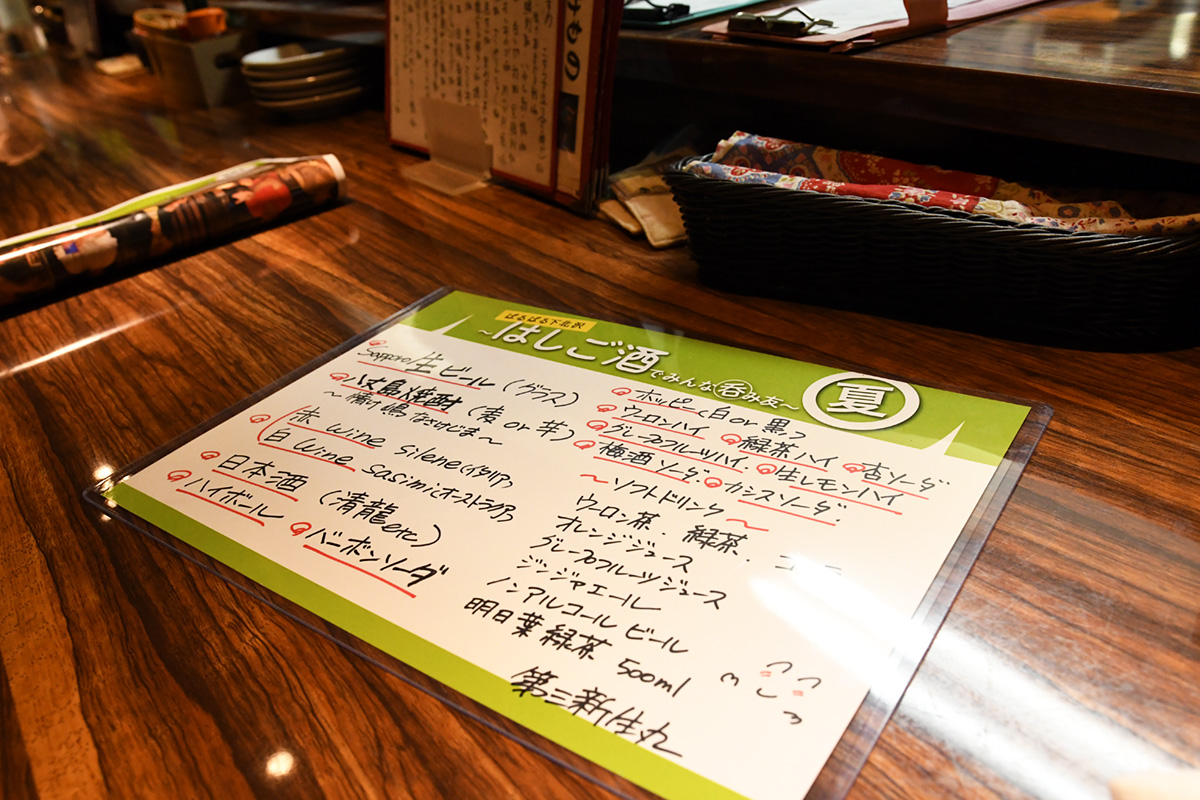 けもの
ばるばる下北沢
〜はしご酒でみんな呑み友〜
夏
Sapporo 生ビール (グラス)
八丈島焼酎 (麦 or 芋)
〜情け嶋 なさけじま〜
赤 wine silene (イタリア)
白 wine sasimi (オーストラリア)
日本酒 (清龍etc)
ハイボール バーボンソーダ
ホッピー (白 or 黒)
ウーロンハイ 緑茶ハイ 杏ソーダ
グレープフルーツハイ 生レモンハイ
梅酒ソーダ カシスソーダ
〜ソフトドリンク〜
ウーロン茶・緑茶・コーラ
オレンジジュース
グレープフルーツジュース
ジンジャエール
ノンアルコールビール
明日葉緑茶 500ml
第三新生丸